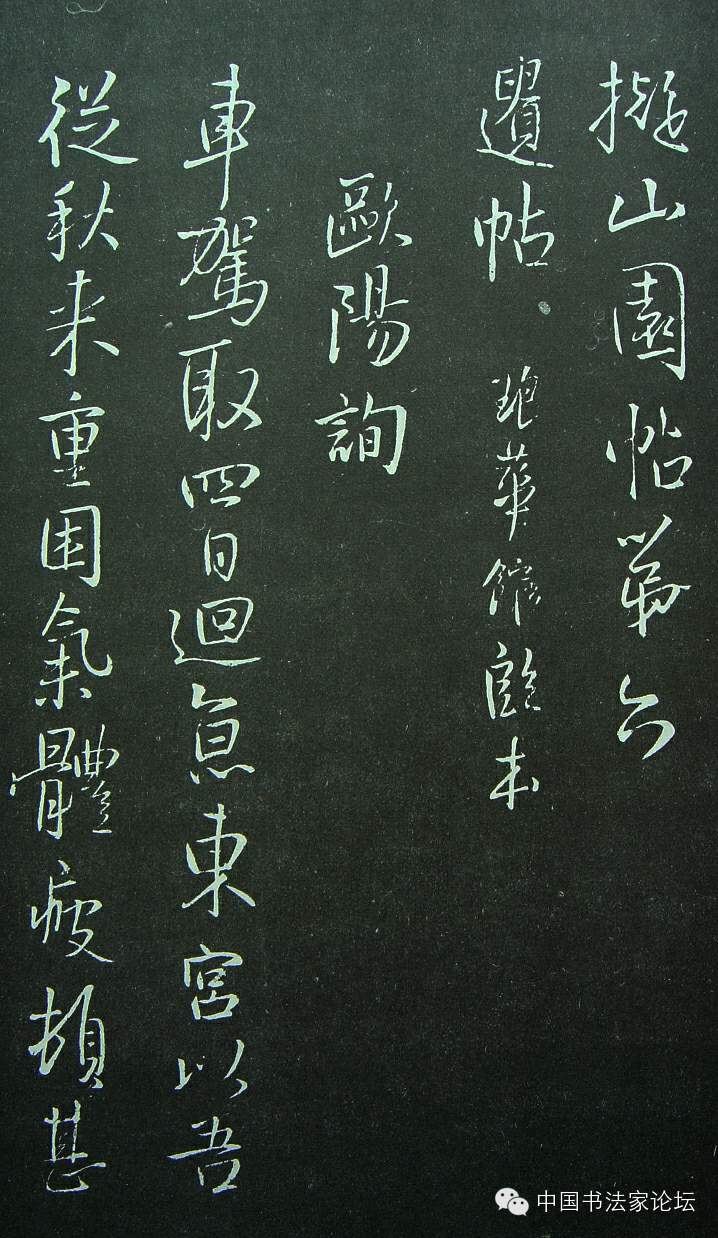 擬山園帖第六
帖 琅華館臨本
歐陽詢
車駕取四日迴息東宮以吾
從秋来重困氣體疲頓甚
中国书法家论坛